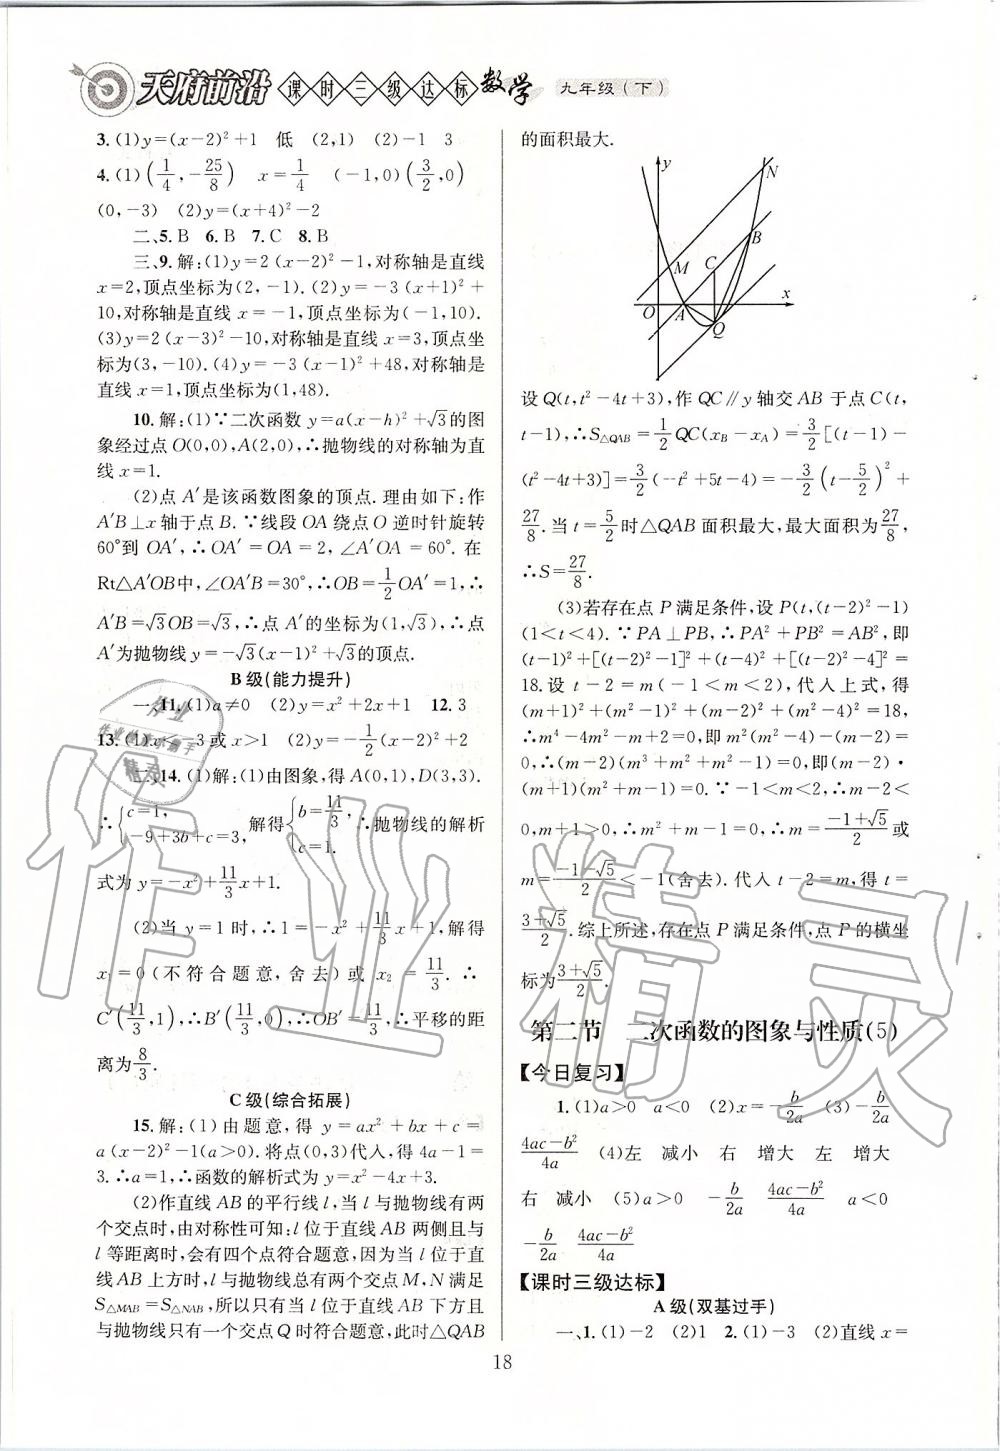 天府前沿 课时三级达标 数学 九年级(下)
3. (1)y=(x-2)²+1 低 (2,1) (2)-1 3
4. (1)(1/4,-25/8) x=1/4 (-1,0)(3/2,0)
(0,-3) (2)y=(x+4)²-2
二、5. B 6. B 7. C 8. B
三、9. 解:(1)y=2(x-2)²-1,对称轴是直线
x=2,顶点坐标为(2,-1). (2)y=-3(x+1)²+
10,对称轴是直线 x=-1,顶点坐标为(-1,10).
(3)y=2(x-3)²-10,对称轴是直线 x=3,顶点坐
标为(3,-10). (4)y=-3(x-1)²+48,对称轴是
直线 x=1,顶点坐标为(1,48).
10. 解:(1)∵二次函数 y=a(x-h)²+√3的图
象经过点 O(0,0),A(2,0),∴抛物线的对称轴为直
线 x=1.
(2)点 A′是该函数图象的顶点. 理由如下:作
A′B⊥x 轴于点 B. ∵线段 OA 绕点 O 逆时针旋转
60°到 OA′,∴OA′=OA=2,∠A′OA=60°. 在
Rt△A′OB中,∠OA′B=30°,∴OB=1/2OA′=1,∴
A′B=√3OB=√3,∴点 A′的坐标为(1,√3),∴点
A′为抛物线 y=-√3(x-1)²+√3的顶点.
B 级(能力提升)
一、11. (1)a≠0 (2)y=x²+2x+1 12. 3
13. (1)x<-3或x>1 (2)y=-1/2(x-2)²+2
二、14. (1)解:(1)由图象,得 A(0,1),D(3,3).
∴{c=1, -9+3b+c=3, 解得{b=11/3, c=1. ∴抛物线的解析
式为 y=-x²+11/3x+1.
(2)当 y=1时,∴1=-x²+11/3x+1,解得
x₁=0(不符合题意,舍去)或 x₂=11/3. ∴
C′(11/3,1),∴B′(11/3,0),∴OB′=11/3,∴平移的距
离为8/3.
C 级(综合拓展)
15. 解:(1)由题意,得 y=ax²+bx+c=
a(x-2)²-1(a>0). 将点(0,3)代入,得 4a-1=
3. ∴a=1,∴函数的解析式为 y=x²-4x+3.
(2)作直线 AB 的平行线 l,当 l 与抛物线有两
个交点时,由对称性可知:l 位于直线 AB 两侧且与
l 等距离时,会有四个点符合题意,因为当 l 位于直
线 AB 上方时,l 与抛物线总有两个交点 M,N 满足
S△MAB=S△NAB,所以只有当 l 位于直线 AB 下方且
与抛物线只有一个交点 Q 时符合题意,此时△QAB
的面积最大.
y
N
B
M
C
O
A
Q
x
设 Q(t,t²-4t+3),作 QC∥y 轴交 AB 于点 C(t,
t-1),∴S△QAB=1/2QC(xB-xA)=3/2[(t-1)-
(t²-4t+3)]=3/2(-t²+5t-4)=-3/2(t-5/2)²+
27/8. 当 t=5/2时△QAB 面积最大,最大面积为27/8,
∴S=27/8.
(3)若存在点 P 满足条件,设 P(t,(t-2)²-1)
(1<t<4). ∵PA⊥PB,∴PA²+PB²=AB²,即
(t-1)²+[(t-2)²-1]²+(t-4)²+[(t-2)²-4]²=
18. 设 t-2=m(-1<m<2),代入上式,得
(m+1)²+(m²-1)²+(m-2)²+(m²-4)²=18,
∴m⁴-4m²-m+2=0,即m²(m²-4)-(m-2)=
0,∴(m-2)(m³+m²+m²-1)=0,即(m-2)·
(m+1)(m²+m-1)=0. ∵-1<m<2,∴m-2<
0,m+1>0,∴m²+m-1=0,∴m=(-1+√5)/2或
m=(-1-√5)/2<-1(舍去). 代入 t-2=m,得 t=
(3+√5)/2. 综上所述,存在点 P 满足条件,点 P 的横坐
标为(3+√5)/2.
第二节 二次函数的图象与性质(5)
【今日复习】
1. (1)a>0 a<0 (2)x=-b/2a (3)-b/2a
(4ac-b²)/4a (4)左 减小 右 增大 左 增大
右 减小 (5)a>0 -b/2a (4ac-b²)/4a a<0
-b/2a (4ac-b²)/4a
【课时三级达标】
A 级(双基过手)
一、1. (1)-2 (2)1 2. (1)-3 (2)直线 x=
18
作业精灵